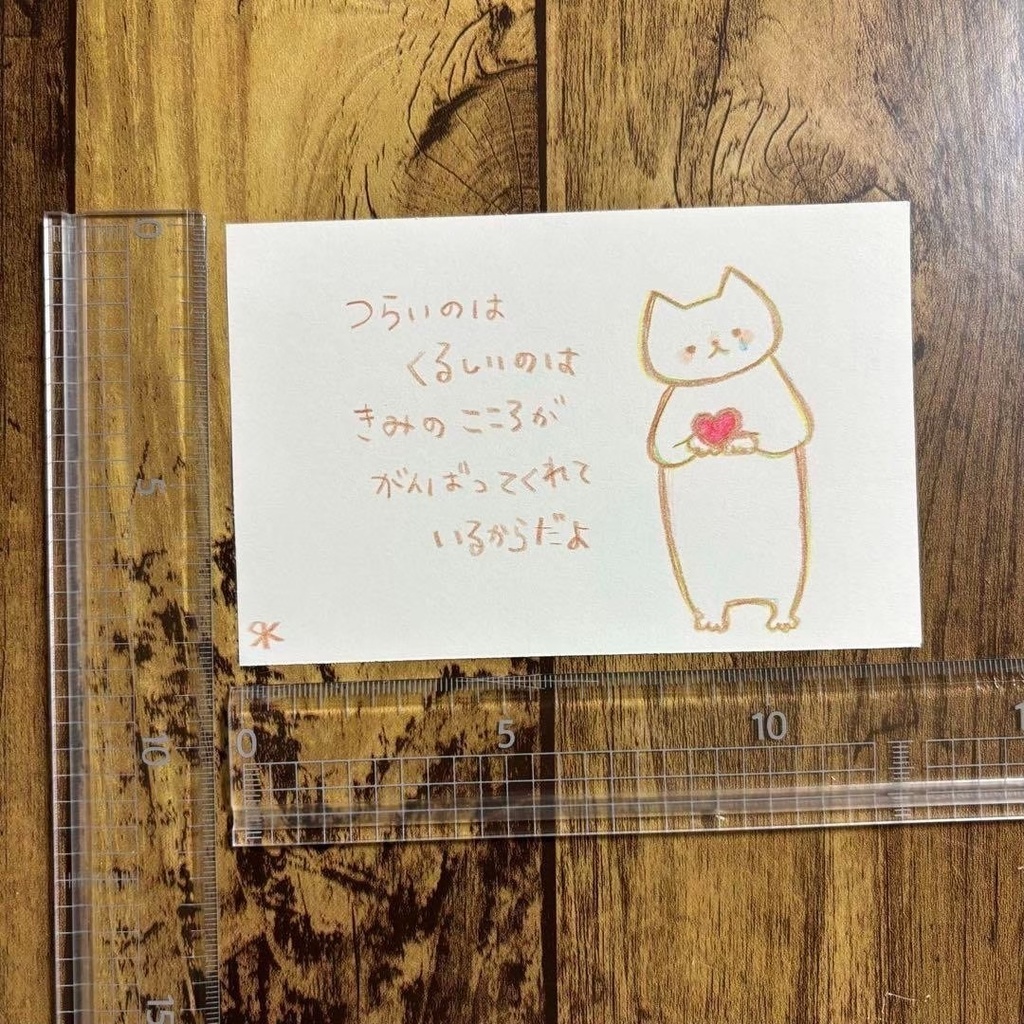 つらいのは
くるしいのは
きみの こころが
がんばってくれて
いるからだよ
0
5
10
15
0 5 10 1